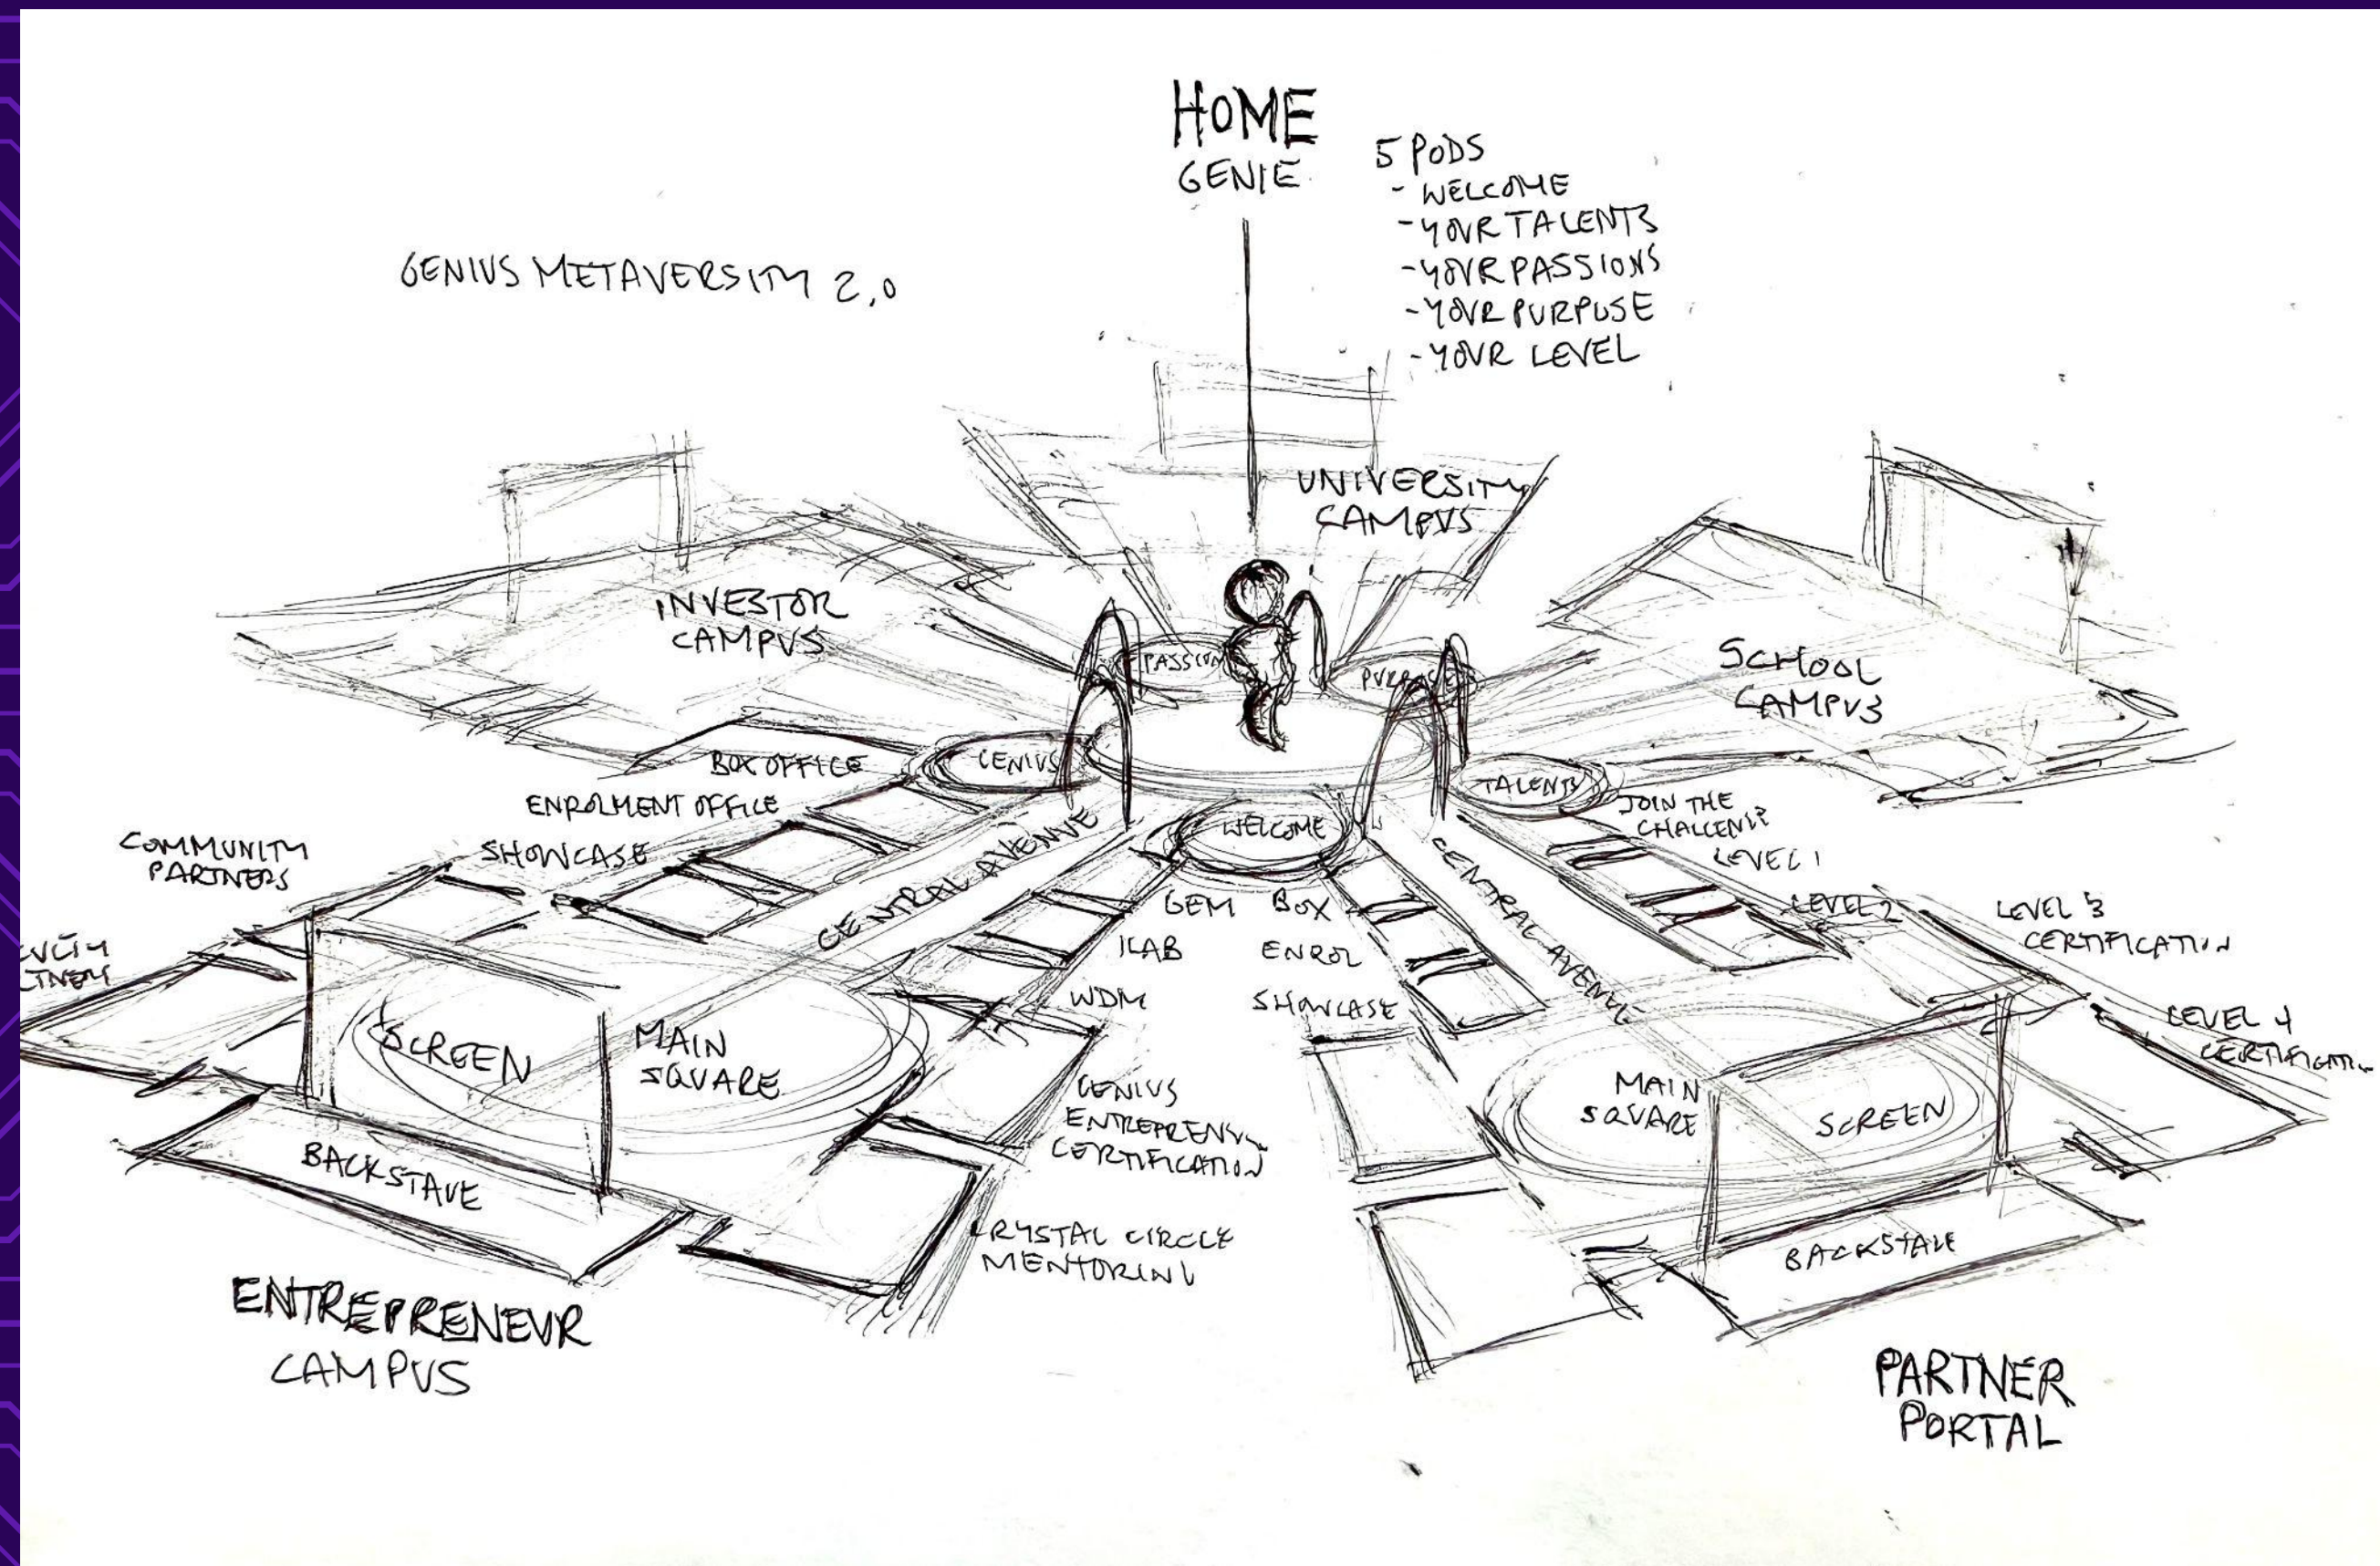 HOME
GENIE
5 PODS
- WELCOME
- YOUR TALENTS
- YOUR PASSIONS
- YOUR PURPOSE
- YOUR LEVEL
GENIUS METAVERSITY 2.0
UNIVERSITY
CAMPUS
INVESTOR
CAMPUS
SCHOOL
CAMPUS
PASSION
PURPOSE
GENIUS
TALENTS
WELCOME
BOX OFFICE
ENROLMENT OFFICE
SHOWCASE
COMMUNITY
PARTNERS
CENTRAL AVENUE
GEM
ILAB
WDM
GENIUS
ENTREPRENEUR
CERTIFICATION
CRYSTAL CIRCLE
MENTORING
SCREEN
MAIN
SQUARE
BACKSTAGE
ENTREPRENEUR
CAMPUS
BOX
ENROL
SHOWCASE
CENTRAL AVENUE
JOIN THE
CHALLENGE
LEVEL 1
LEVEL 2
LEVEL 3
CERTIFICATION
LEVEL 4
CERTIFICATION
MAIN
SQUARE
SCREEN
BACKSTAGE
PARTNER
PORTAL